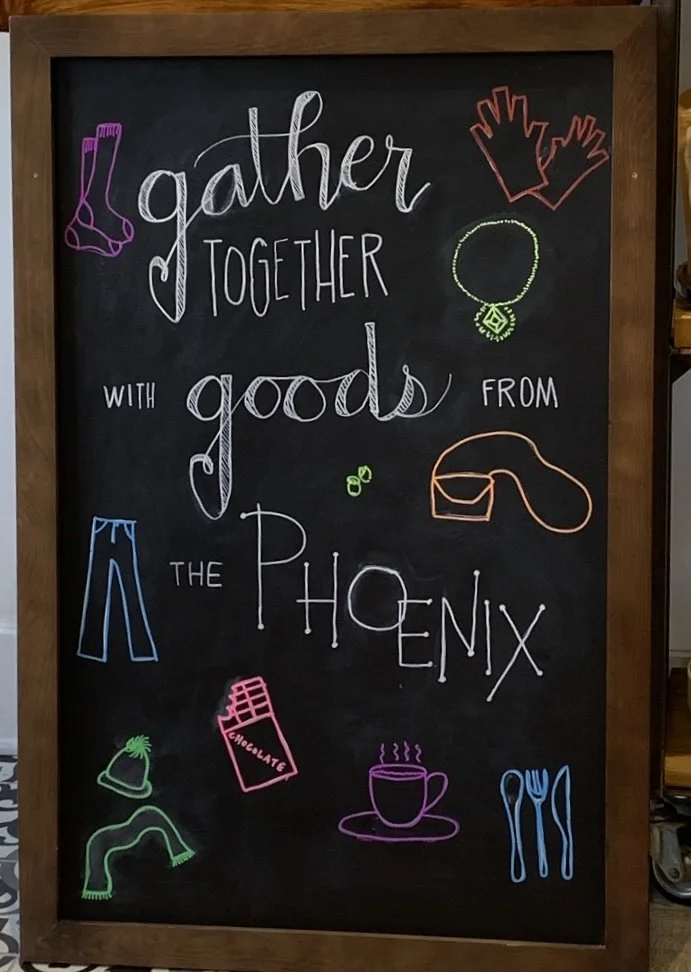 gather
TOGETHER
WITH goods FROM
THE PHOENIX
CHOCOLATE